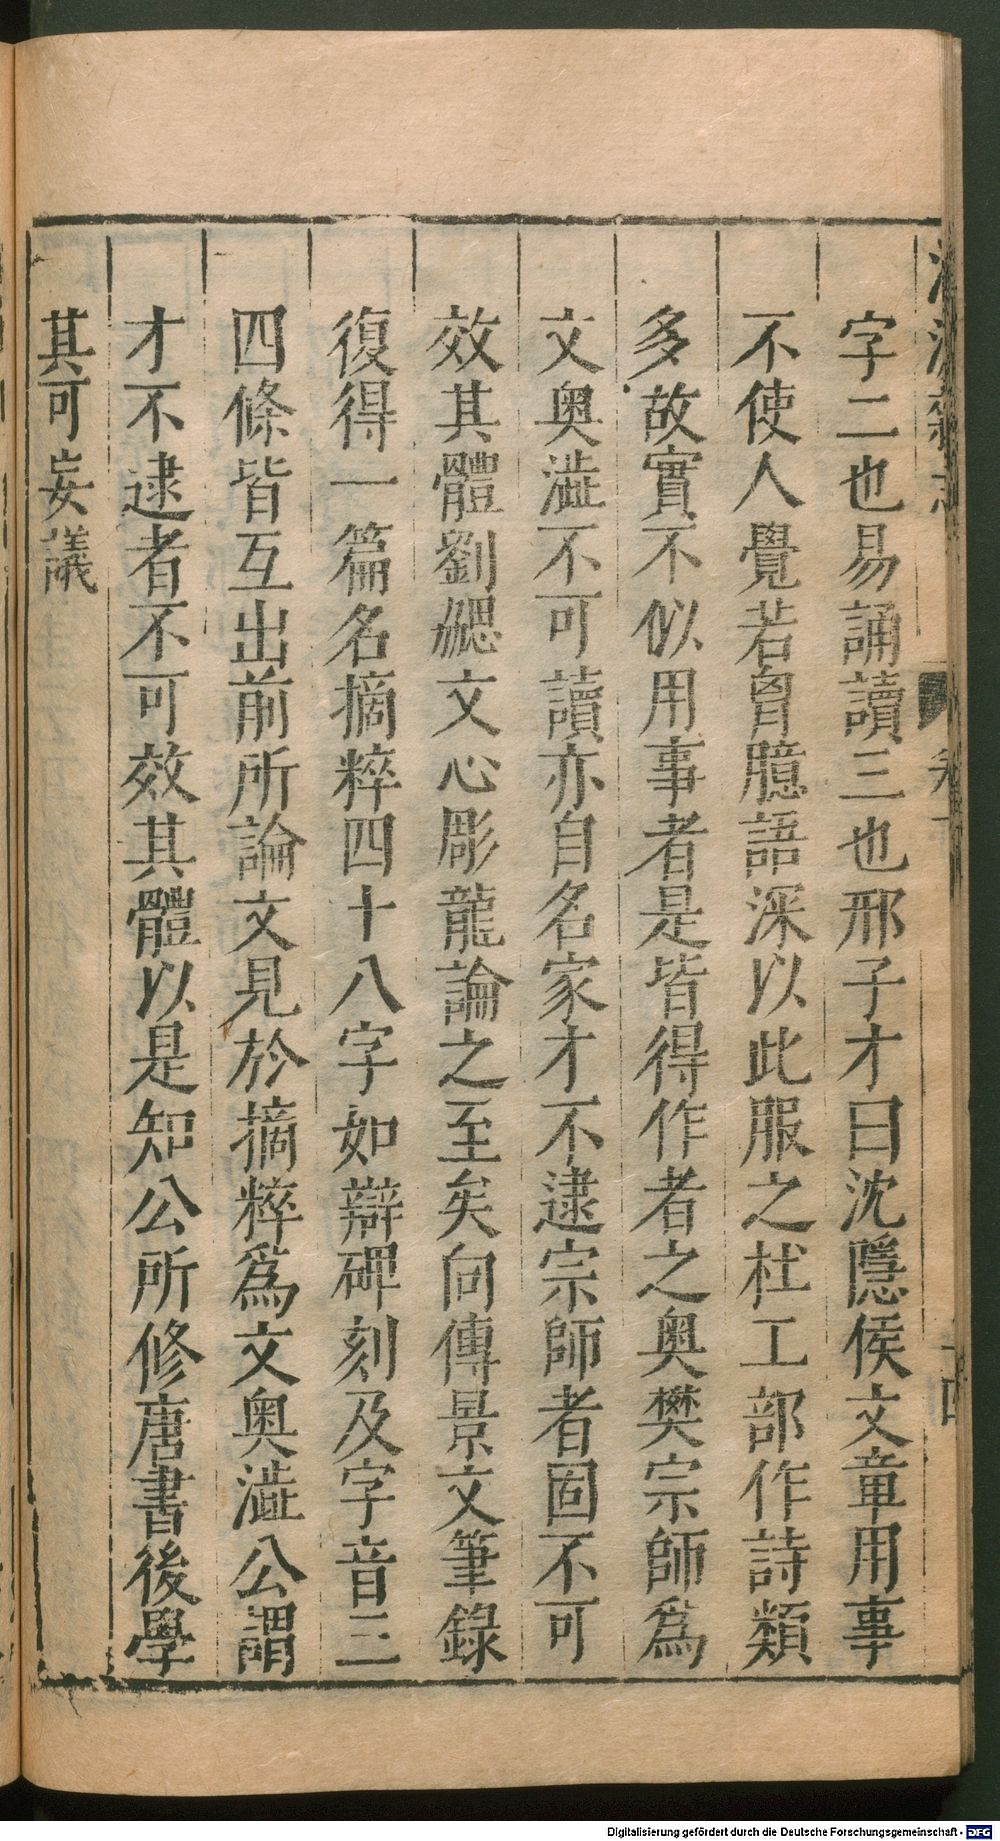 字二也易誦讀三也邢子才曰沈隱侯文章用事
不使人覺若胷臆語深以此服之杜工部作詩類
多故實不似用事者是皆得作者之奥樊宗師爲
文奥澁不可讀亦自名家才不逮宗師者固不可
效其體劉勰文心彫龍論之至矣向傳景文筆錄
復得一篇名摘粹四十八字如辯碑刻及字音三
四條皆互出前所論文見於摘粹爲文奥澁公謂
才不逮者不可效其體以是知公所修唐書後學
其可妄議
Digitalisierung gefördert durch die Deutsche Forschungsgemeinschaft - DFG